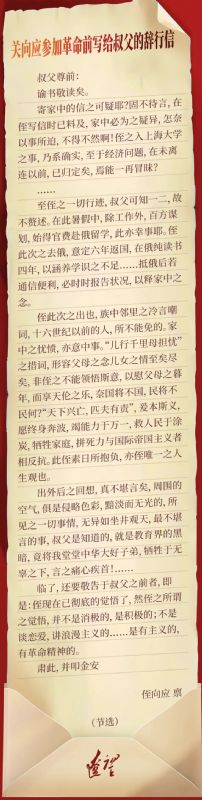 关向应参加革命前写给叔父的辞行信
叔父尊前：
谕书敬读矣。
寄家中的信之可疑耶？固不待言，在
侄写信时已料及，家中必为之疑异，怎奈
以事所迫，不得不然啊！侄之入上海大学
之事，乃系确实，至于经济问题，在未离
连以前，已归定矣，焉能一再冒昧？
……
至侄之一切行迹，叔父可知一二，故
不赘述。在此暑假中，除工作外，百方谋
划，始得官费赴俄留学，此亦幸事耶。侄
此次之去俄，意定六年返国，在俄纯读书
四年，以涵养学识之不足……抵俄后若
通信便利，必时时报告状况，以释家中之
念。
侄此次之出也，族中邻里之冷言嘲
词，十六世纪以前的人，所不能免的。家
中之忧愤，亦意中事。“儿行千里母担忧”
之措词，形容父母之念儿女之情至矣尽
矣，非侄之不能领悟斯意，以慰父母之暮
年，而享天伦之乐，奈国将不国，民将不
民何？“天下兴亡，匹夫有责”，爰本斯义，
愿终身奔波，竭能力于万一，救人民于涂
炭，牺牲家庭，拼死力与国际帝国主义者
相反抗。此侄素日所抱负，亦侄唯一之人
生观也。
出外后之回想，真不堪言矣，周围的
空气，俱是侵略色彩，黯淡而无光的，所
见之一切事情，无异如坐井观天，最不堪
言的事，叔父是知道的，就是教育界的黑
暗，竟将我堂堂中华大好子弟，牺牲于无
辜之下，言之痛心疾首！……
临了，还要敬告于叔父之前者，即
是：侄现在已彻底的觉悟了，然侄之所谓
之觉悟，并不是消极的，是积极的；不是
谈恋爱，讲浪漫主义的……是有主义的，
有革命精神的。
肃此，并叩金安
侄向应 禀
（节选）